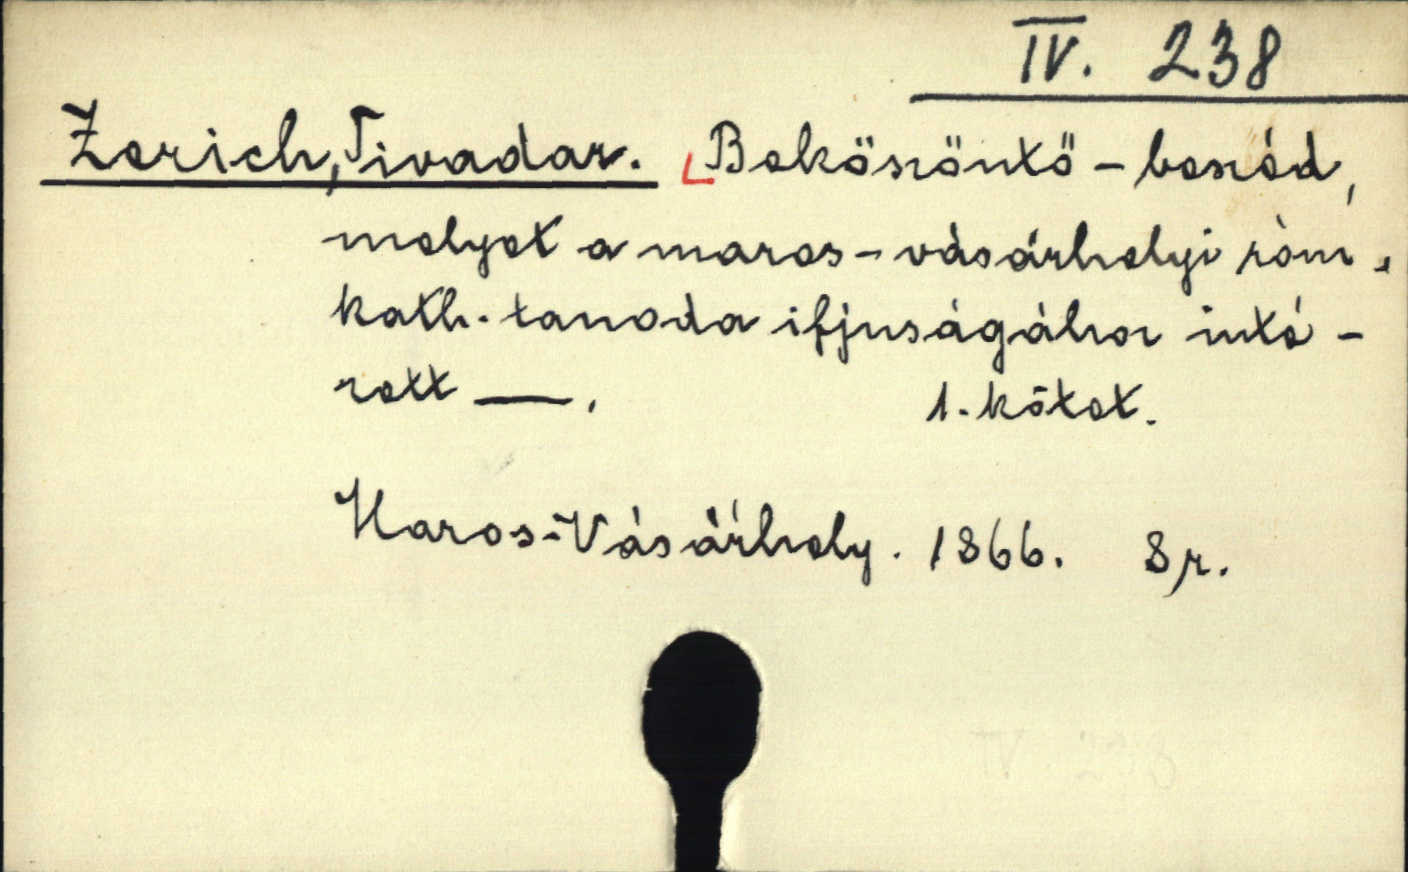 IV. 238
Zerich, Tivadar. Beköszöntő - beszéd,
melyet a maros - vásárhelyi róm.
kath. tanoda ifjuságához inté -
zett —.
1. kötet.
Maros-Vásárhely. 1866. 8 r.